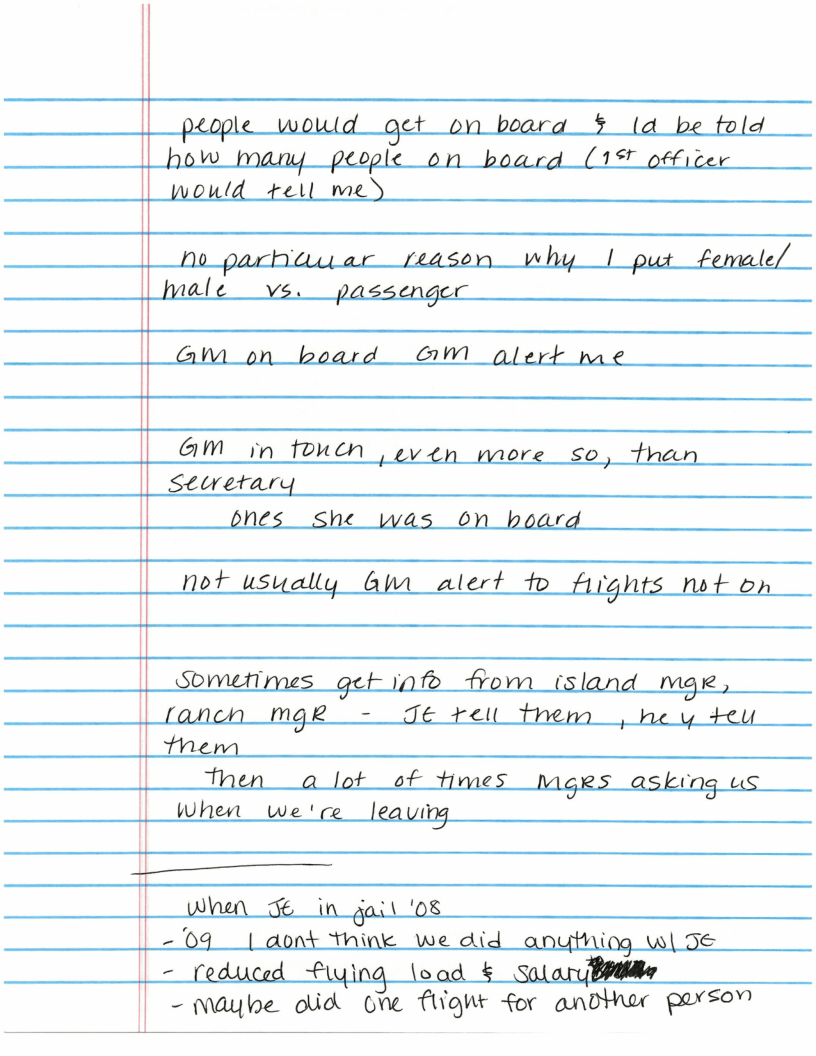 people would get on board & Id be told
how many people on board (1st officer
would tell me)
no particular reason why I put female/
male vs. passenger
GM on board GM alert me
GM in touch, even more so, than
secretary
ones she was on board
not usually GM alert to flights not on
sometimes get info from island mgR,
ranch mgR - JE tell them, hey tell
them
then a lot of times mgRs asking us
when we're leaving
when JE in jail '08
- '09 I dont think we did anything w/ JE
- reduced flying load & salary
- maybe did one flight for another person